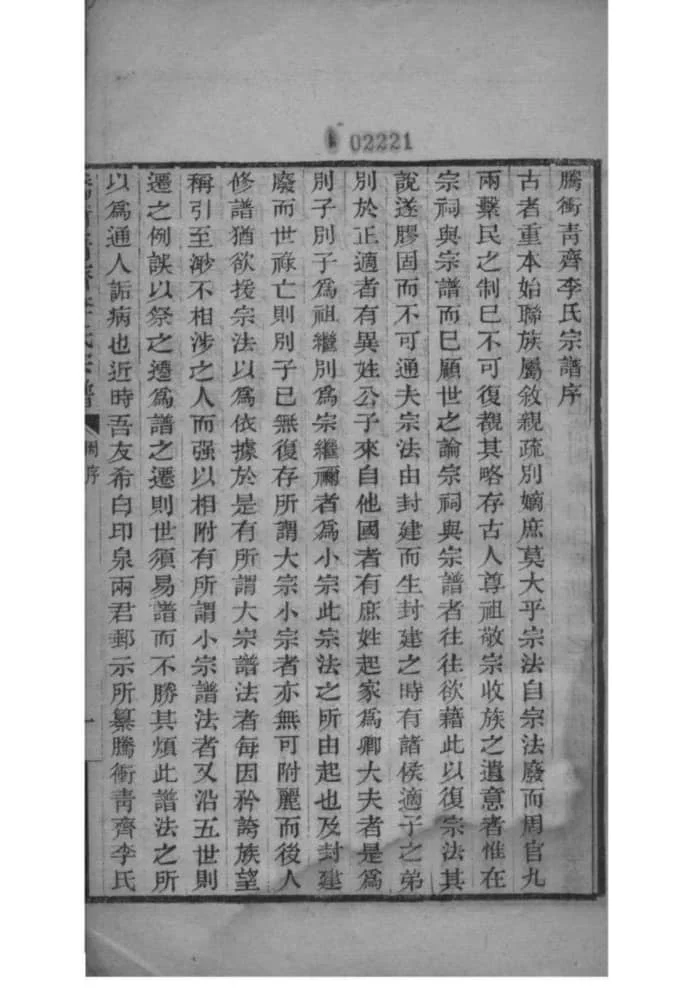 02221
騰衝靑齊李氏宗譜序
古者重本始聯族屬敘親疏別嫡庶莫大乎宗法自宗法廢而周官九
兩繫民之制已不可復覩其略存古人尊祖敬宗收族之遺意者惟在
宗祠與宗譜而已顧世之論宗祠與宗譜者往往欲藉此以復宗法其
說遂膠固而不可通夫宗法由封建而生封建之時有諸侯適子之弟
別於正適者有異姓公子來自他國者有庶姓起家爲卿大夫者是爲
別子別子爲祖繼別爲宗繼禰者爲小宗此宗法之所由起也及封建
廢而世祿亡則別子已無復存所謂大宗小宗者亦無可附麗而後人
修譜猶欲援宗法以爲依據於是有所謂大宗譜法者每因矜誇族望
稱引至渺不相涉之人而强以相附有所謂小宗譜法者又沿五世則
遷之例誤以祭之遷爲譜之遷則世須易譜而不勝其煩此譜法之所
以爲通人詬病也近時吾友希白印泉兩君郵示所纂騰衝靑齊李氏
騰衝靑齊李氏宗譜
周序
一